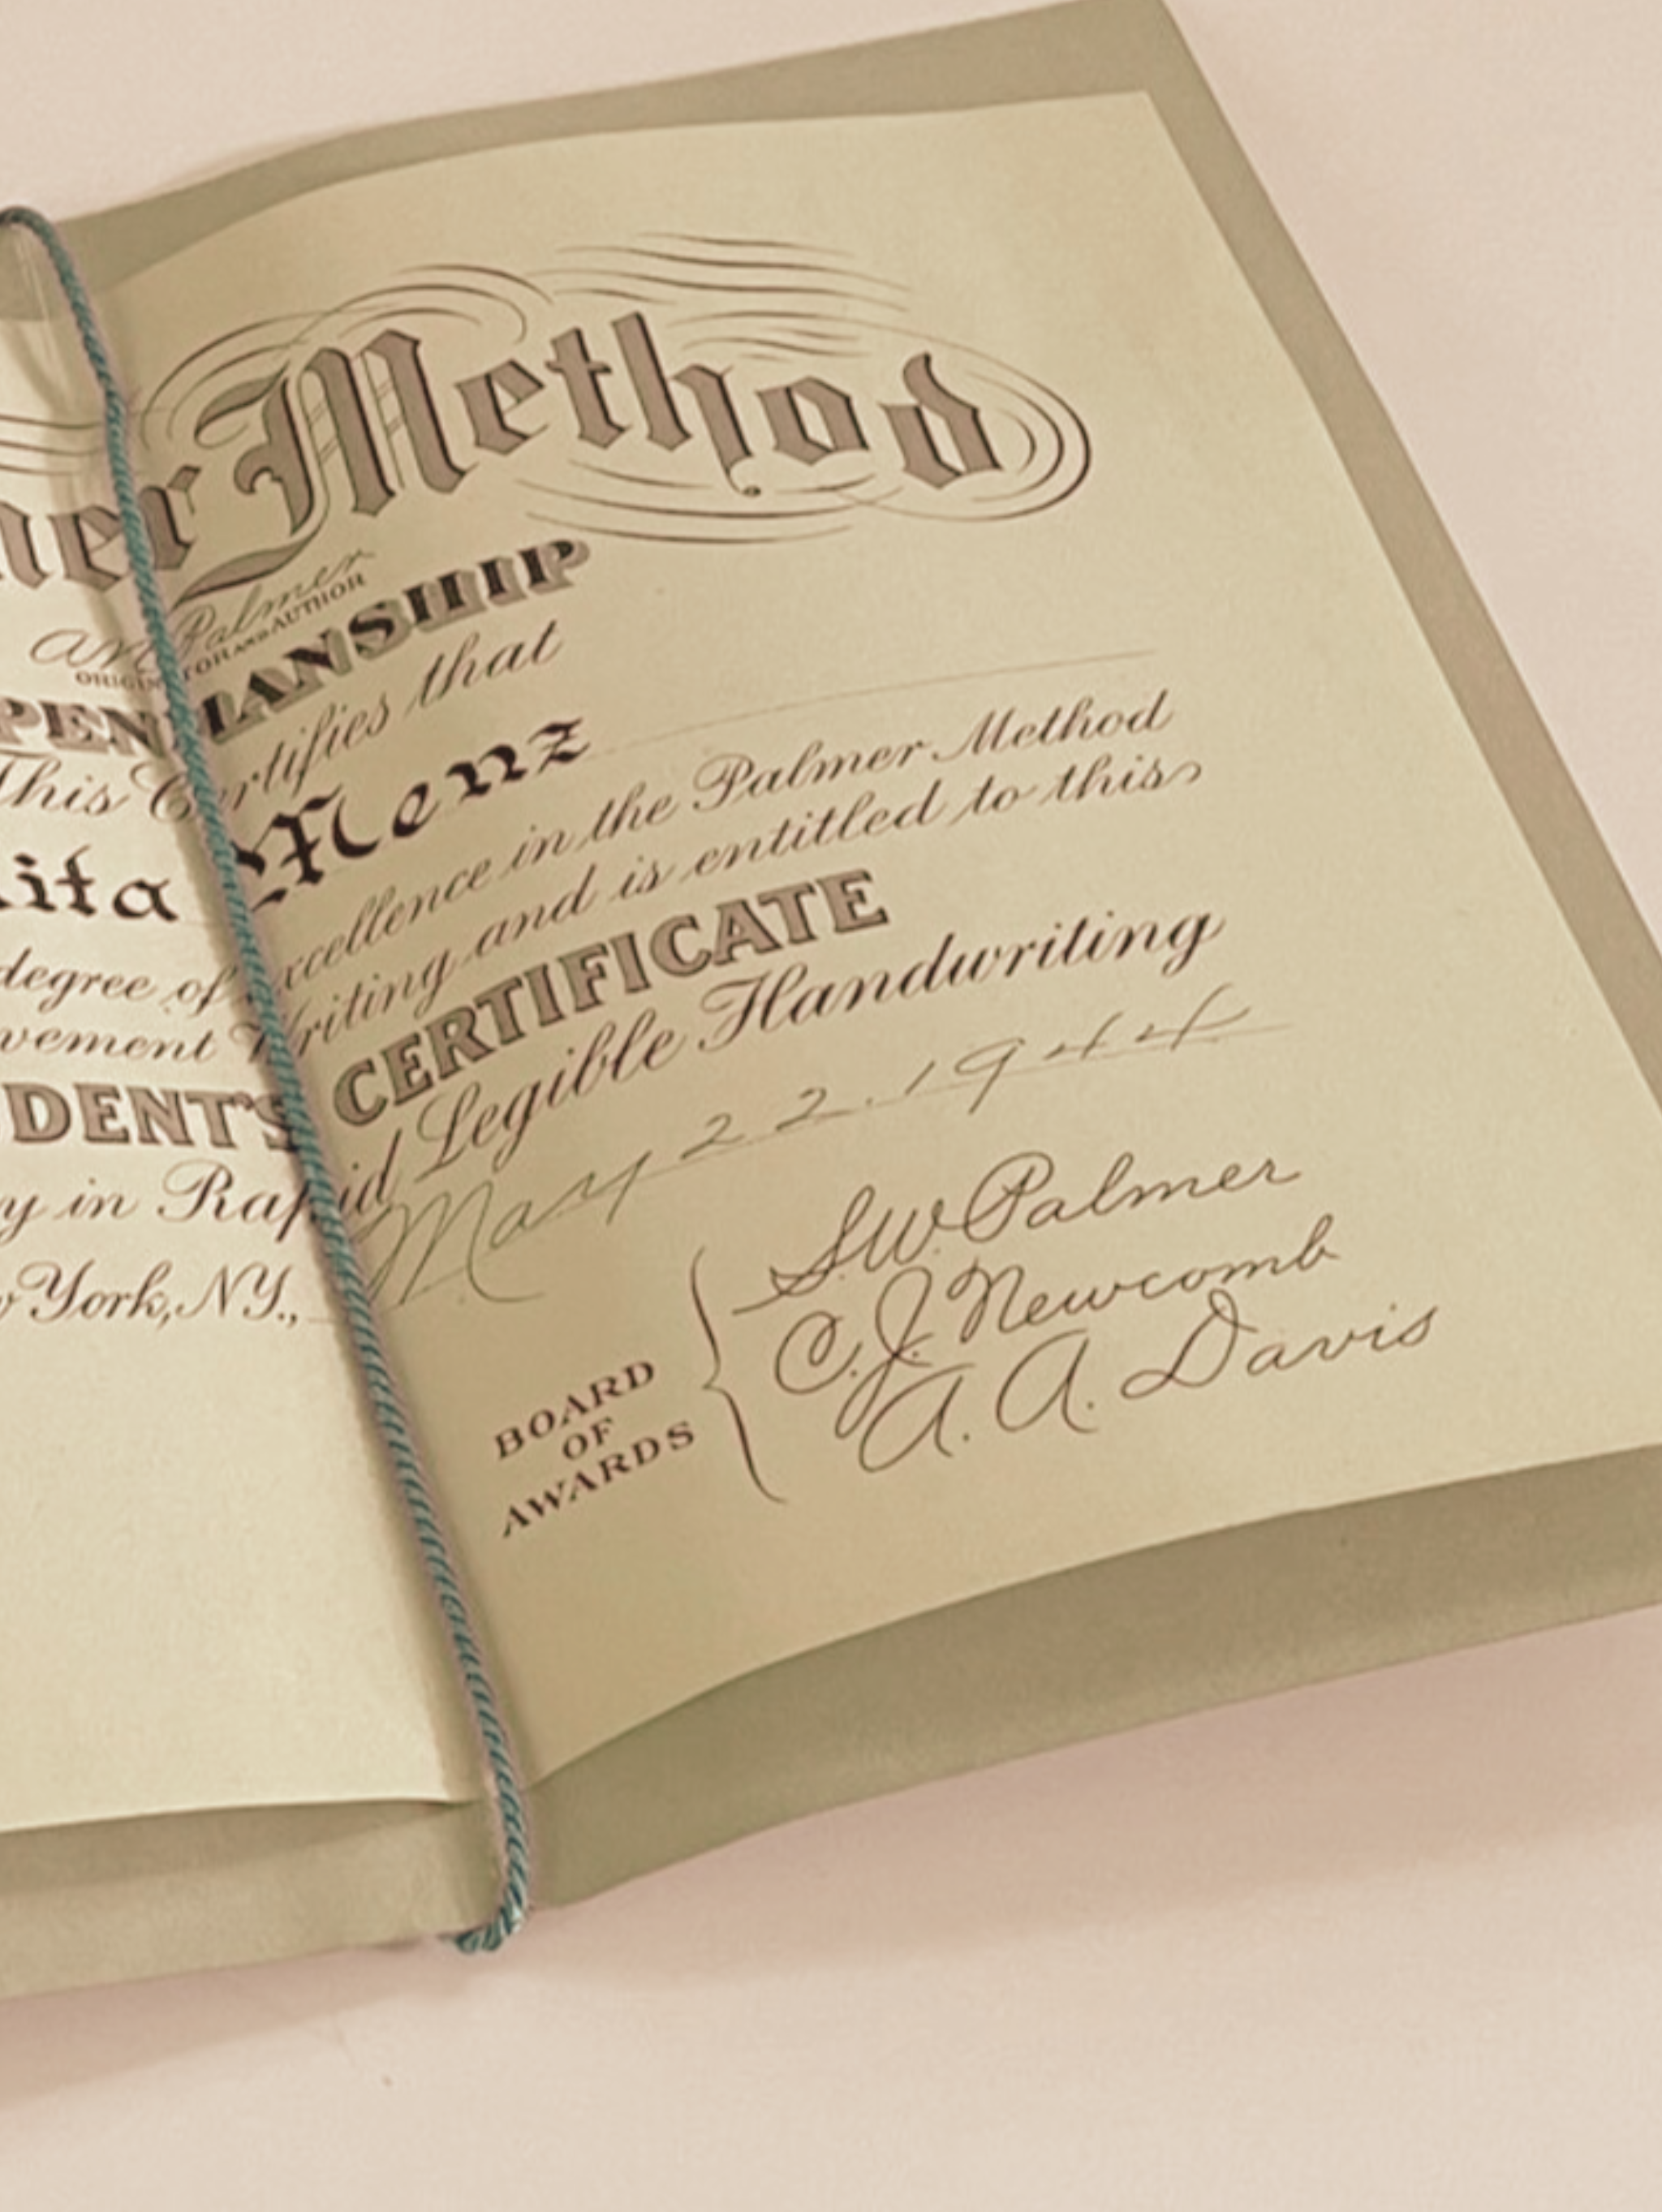 ner Method
A N Palmer
ORIGINATOR AND AUTHOR
PENMANSHIP
This Certifies that
ita Menz
degree of excellence in the Palmer Method
vement Writing and is entitled to this
DENT'S CERTIFICATE
y in Rapid Legible Handwriting
w York, N.Y., May 22. 1944
BOARD
OF
AWARDS
S.W. Palmer
C.J. Newcomb
A. A. Davis